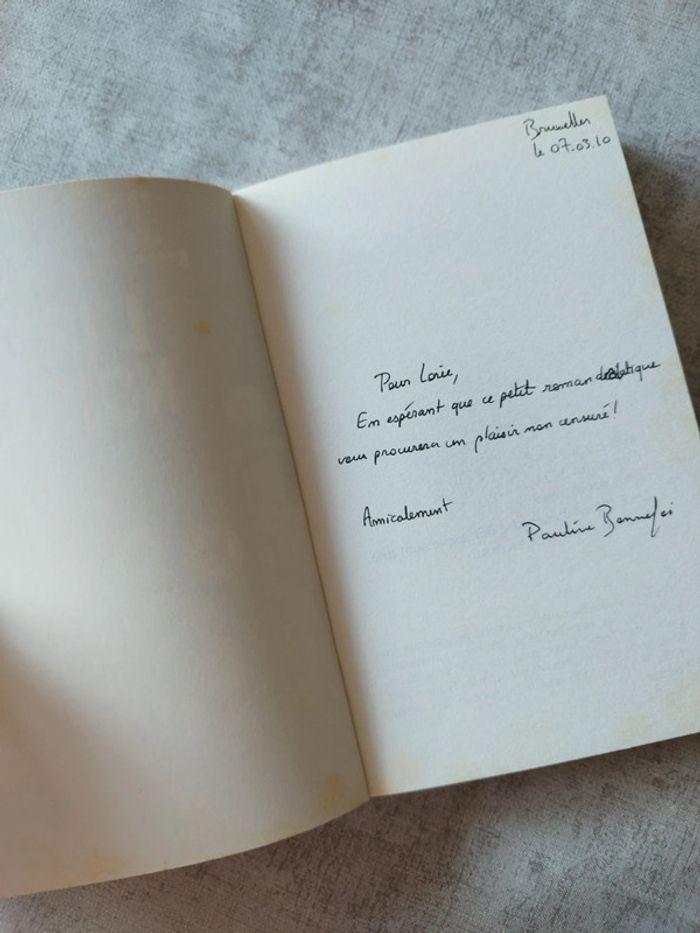 Bruxelles
le 07.03.10
Pour Lorie,
En espérant que ce petit roman
vous procurera un plaisir non censuré!
Amicalement
Pauline Bonnefoi